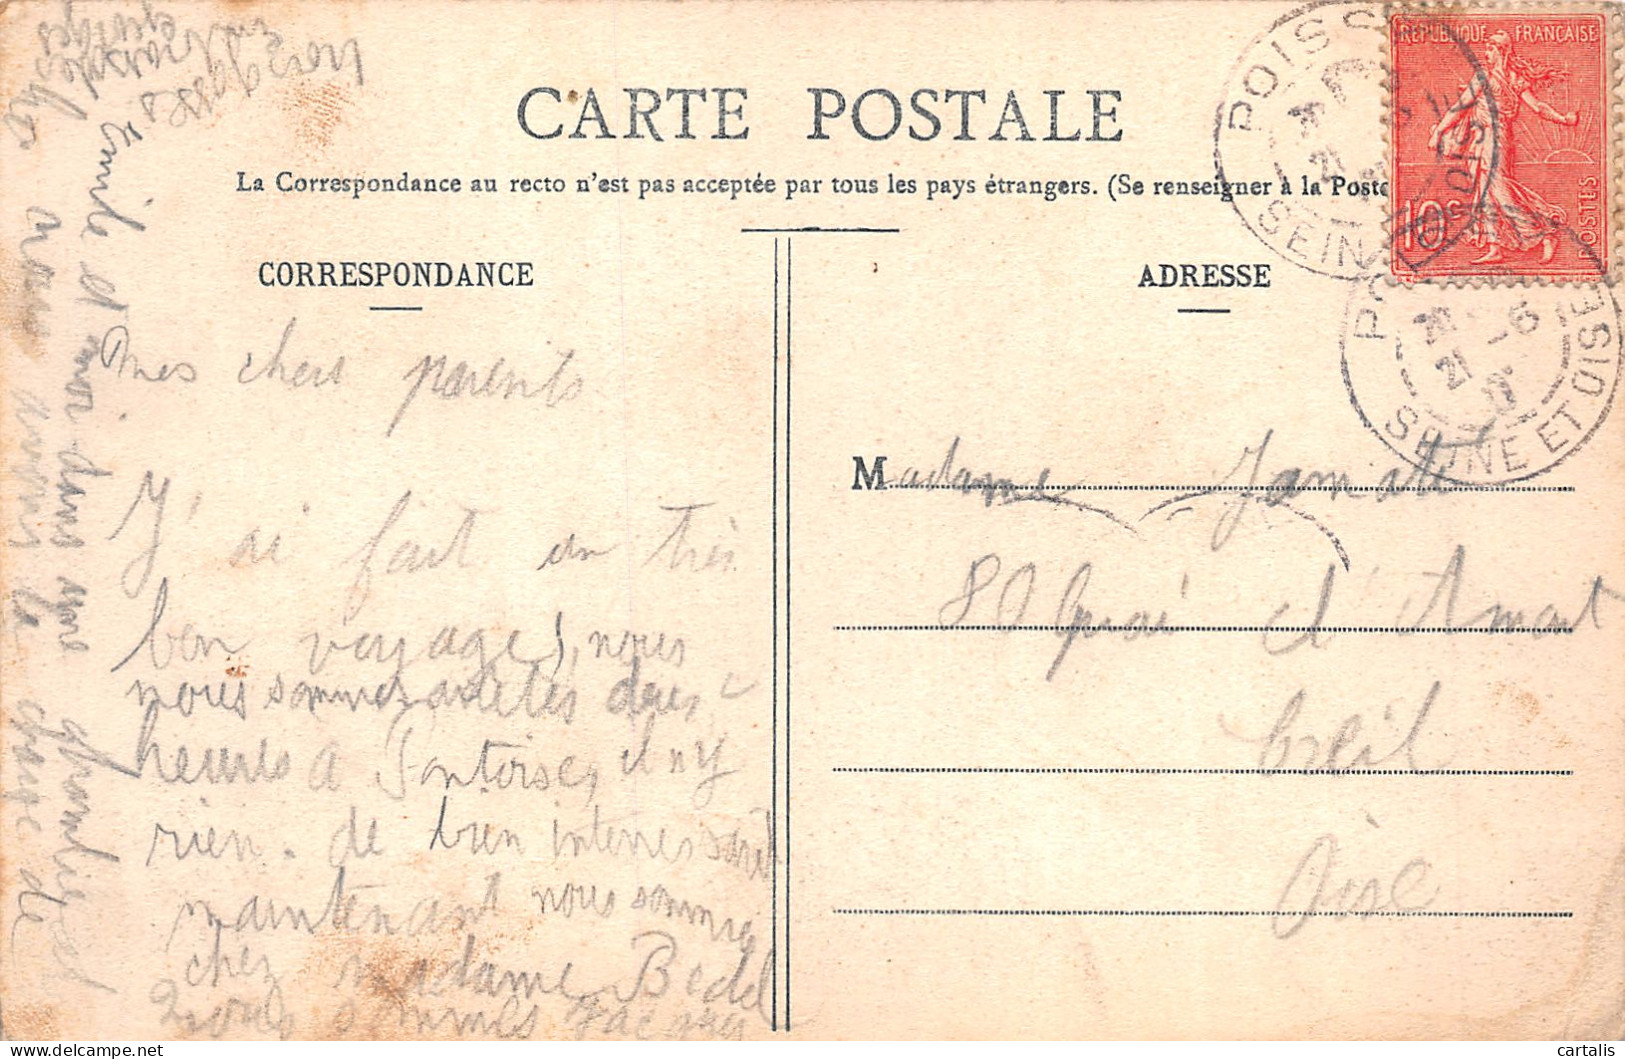 CARTE POSTALE
La Correspondance au recto n'est pas acceptée par tous les pays étrangers. (Se renseigner à la Poste
CORRESPONDANCE
ADRESSE
Mes chers parents
J'ai fait un très
bon voyage, nous
nous sommes arretés deus
heures a Pontoise, il n'y
rien de bien interressant
maintenant nous sommes
chez madame Bedel
nous sommes Jacques
Emile et moi dans une grande
nous avons la chose de
Madame Jamati
80 quai d'Amont
Creil
Oise
REPUBLIQUE FRANÇAISE
10c
POSTES
POISSY
SEINE ET OISE
21
SEINE ET OISE
21
cartalis
delcampe.net